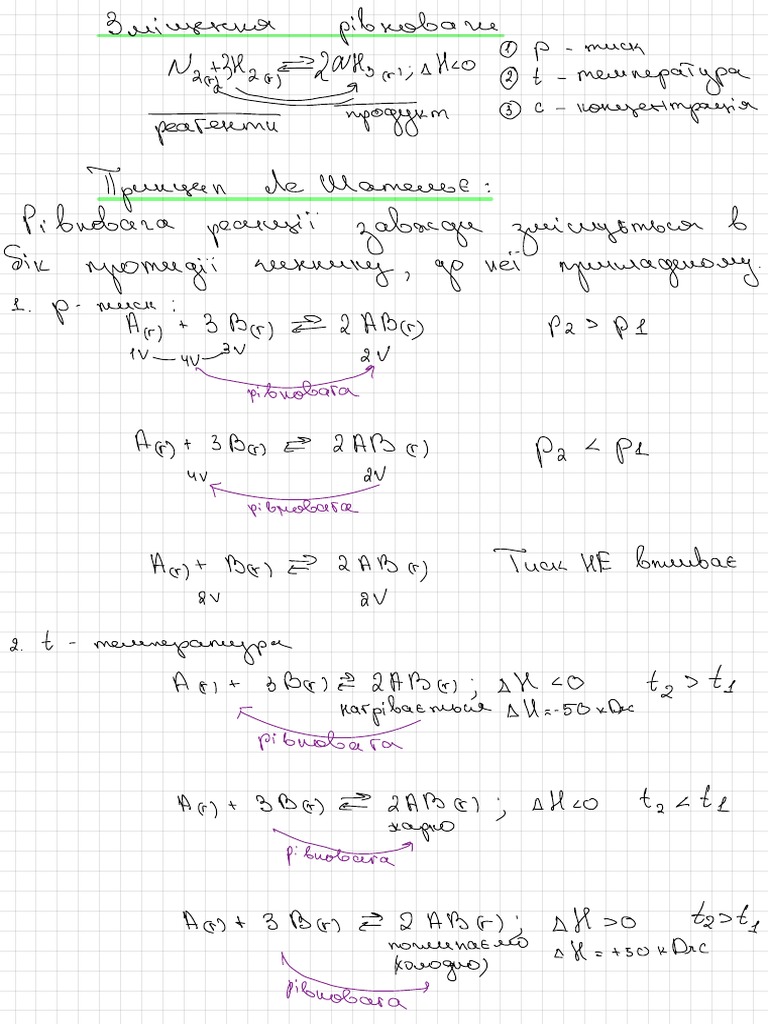 Зміщення рівноваги
N₂(г) + 3H₂(г) ⇄ 2NH₃(г); ΔH<0
реагенти продукт
① p - тиск
② t - температура
③ c - концентрація
Принцип Ле Шательє:
Рівновага реакції завжди зміщується в
бік протидії чиннику, до неї прикладеному.
1. p - тиск:
A(г) + 3B(г) ⇄ 2AB(г) p₂ > p₁
1V — 4V — 3V 2V
рівновага
A(г) + 3B(г) ⇄ 2AB(г) p₂ < p₁
4V 2V
рівновага
A(г) + B(г) ⇄ 2AB(г) Тиск НЕ впливає
2V 2V
2. t - температура
A(г) + 3B(г) ⇄ 2AB(г); ΔH<0 t₂ > t₁
нагрівається ΔH=-50 кДж
рівновага
A(г) + 3B(г) ⇄ 2AB(г); ΔH<0 t₂ < t₁
жарко
рівновага
A(г) + 3B(г) ⇄ 2AB(г); ΔH>0 t₂>t₁
поглинаємо ΔH=+50 кДж
(холодно)
рівновага